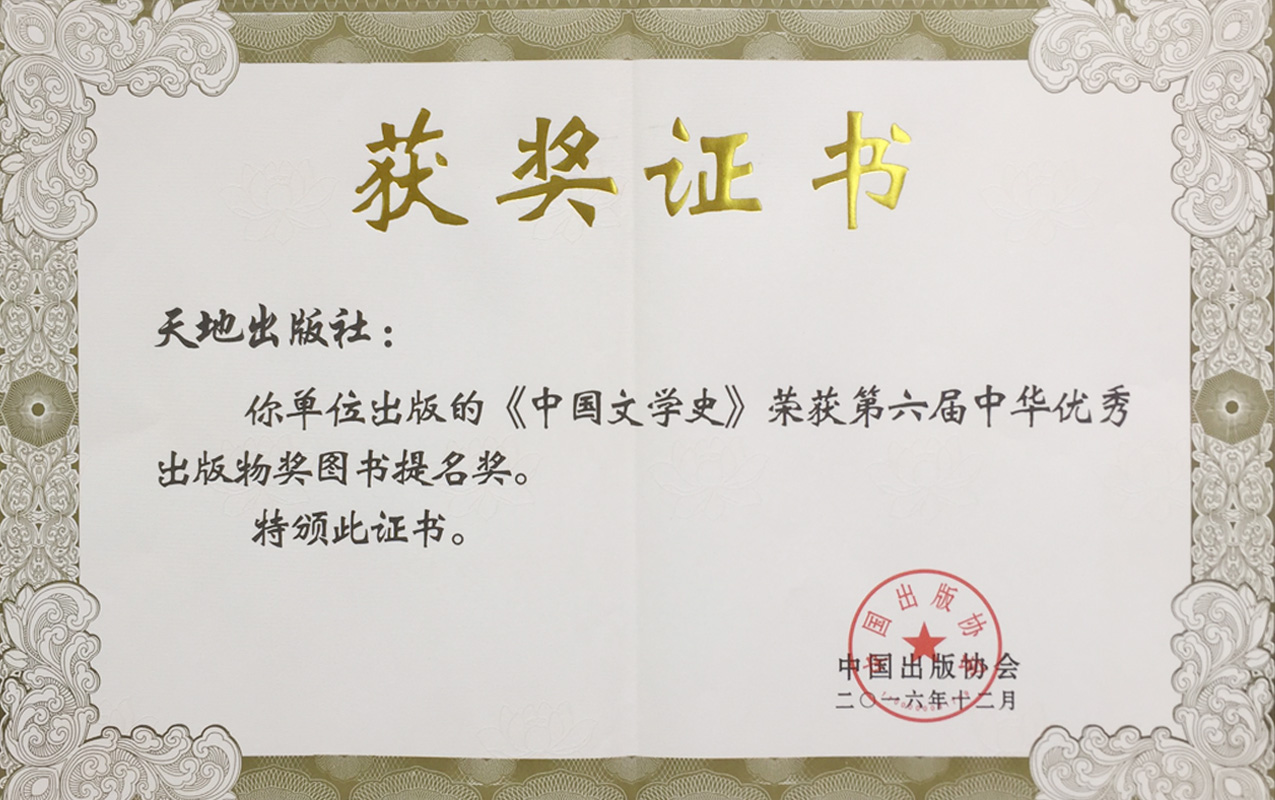 获奖证书
天地出版社：
你单位出版的《中国文学史》荣获第六届中华优秀
出版物奖图书提名奖。
特颁此证书。
中国出版协会
中国出版协会
二〇一六年十二月